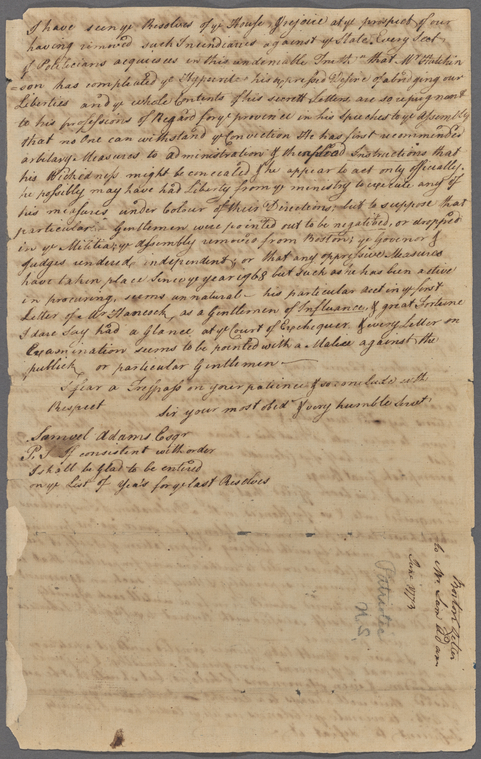 I have seen ye Resolves of ye House, & rejoice at ye prospect of our
having removed such Incendiaries against ye State. Every Sect
of Politicians acquiesces in this undeniable Truth that Mr Hutchin
son has compleated ye Appent his expressed Desire of abridging our
Liberties and ye whole Contents of his secrett Letters are so repugnant
to his professions of Regard for ye province in his Speeches to ye Assembly
that no One can withstand ye Conviction He has first recommended
arbitary Measures to administration & then Instructions that
his Wickedness might be concealed & he appear to act only officially.
he possibly may have had Liberty from ye ministry to execute any of
his measures under Colour of their Directions, but to suppose that
particular Gentlemen were pointed out to be negatived, or dropped
in ye Militia; ye Assembly removed from Boston; ye Govenor &
Judges rendered independent; or that any oppressive Measures
have taken place Since ye year 1768 but Such as he has been active
in procuring, seems unnatural his particular in ye first
Letter of Mr Hancock, as a Gentleman of Influance, & great Fortune
I dare Say had a Glance at ye Court of Exchequer. & every Letter on
Examination seems to be pointed with a Malice against the
publick or particular Gentlemen.
I fear a Trespass on your patience & so conclude with
Respect Sir your most obedt & very humble Servt
Samuel Adams Esqr
P.S. If consistent with order
I shall be glad to be entired
on ye List of Yea's for ye last Resolves
to Mr. Sam Adam
June 1773
Patriotic
N.S.